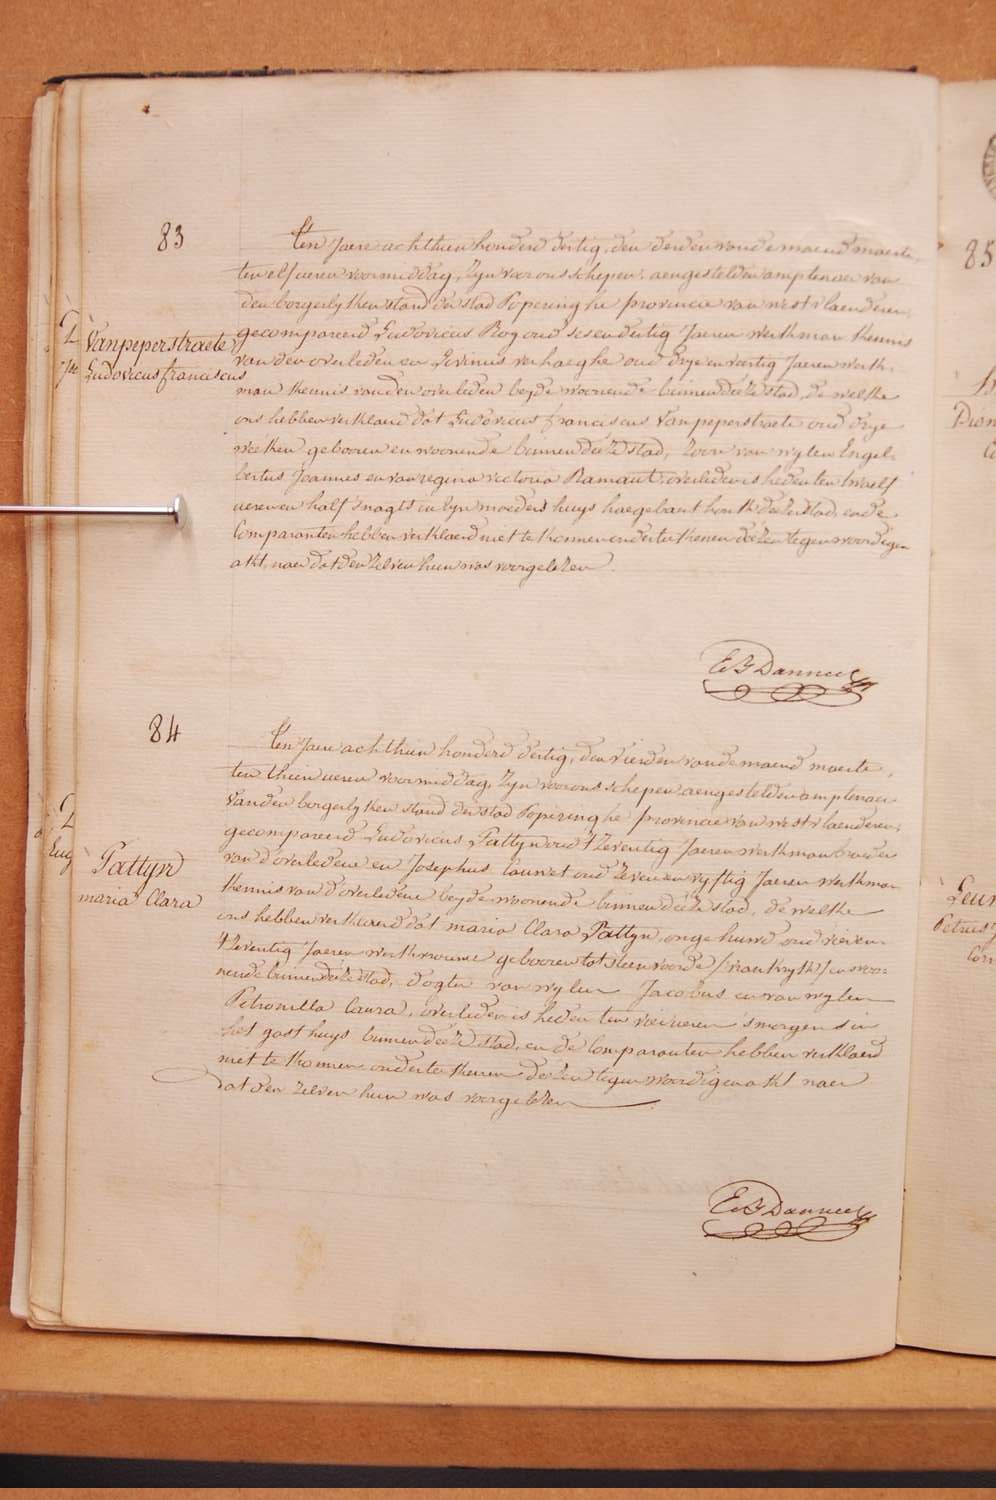 83
Vanpeperstraete
Ludovicus franciscus
Ten Jaere achthien honderd dertig, den derden van de maend maerte,
ten elf ueren voormiddag, Zyn voor ons schepen, aengestelden amptenaer van
den borgerlyken stand der stad Poperinghe provincie van westvlaenderen,
gecompareerd Ludovicus Roy oud sesendertig Jaeren werkman kennis
van den overleden en Livinus verhaeghe oud dry en veertig Jaeren werk-
man kennis van den overleden beyde woonende binnen deeze stad, de welke
ons hebben verklaerd dat Ludovicus franciscus Vanpeperstraete oud drye
weeken gebooren en woonende binnen deeze stad, Zoon van wylen Engel-
bertus Joannes en van regina victoria Ramaut, overleden is heden ten twaelf
ueren en half s'nagts in Zyn moeders huys haegebaut houk deezer stad, en de
Comparanten hebben verklaerd niet te konnen onderteekenen deezen tegenwoordigen
akt, naer dat den zelven hun was voorgelezen.
E B Danneel
84
Pattyn
maria Clara
Ten Jaere achthien honderd dertig, den vierden van de maend maerte,
ten thien ueren voormiddag, Zyn voor ons schepen aengestelden amptenaer
Van den borgerlyken stand der stad Poperinghe provincie van westvlaenderen,
gecompareerd Ludovicus Pattyn oud t'Zeventig Jaeren werkman broeder
van d'overledene en Josephus Cauwet oud zeven en vyftig Jaeren werkman
kennis van d'overledene beyde woonende binnen deeze stad, de welke
ons hebben verklaerd dat maria Clara Pattyn, ongehuwd oud vier en
t'Zeventig Jaeren werkvrouwe gebooren tot steenvoorde /vrankryk/ en woo-
nende binnen deeze stad, dogter van wylen Jacobus en van wylen
Petronilla Caura, overleden is heden ten vier ueren s'morgens in
het gasthuys binnen deeze stad, en de Comparanten hebben verklaerd
niet te konnen onderteekenen deezen tegenwoordigen akt naer
dat den zelven hun was voorgelezen.
E B Danneel
85